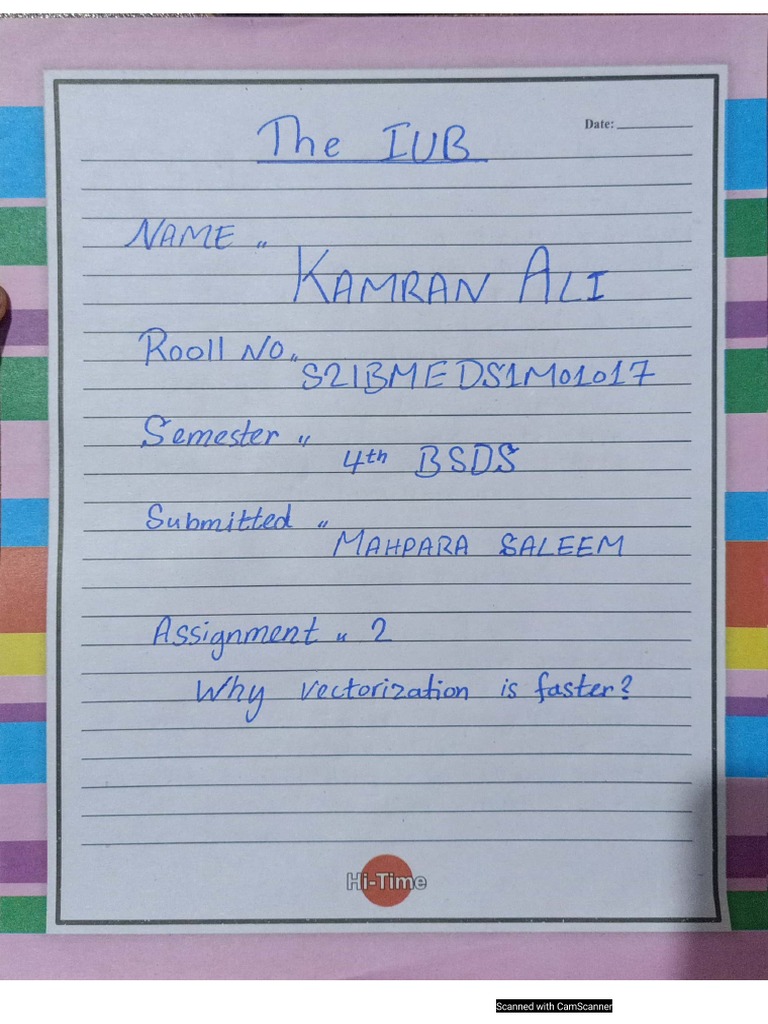 The IUB
Date:
NAME "
KAMRAN ALI
Rooll NO "
S21BMEDS1M01017
Semester "
4th BSDS
Submitted "
MAHPARA SALEEM
Assignment " 2
Why vectorization is faster?
Hi-Time
Scanned with CamScanner